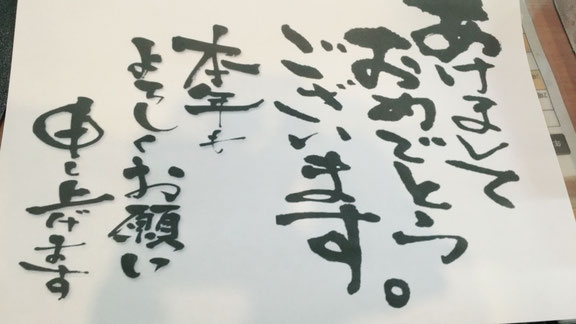 あけまして
おめでとう。
ございます
本年も
よろしくお願い
申し上げます